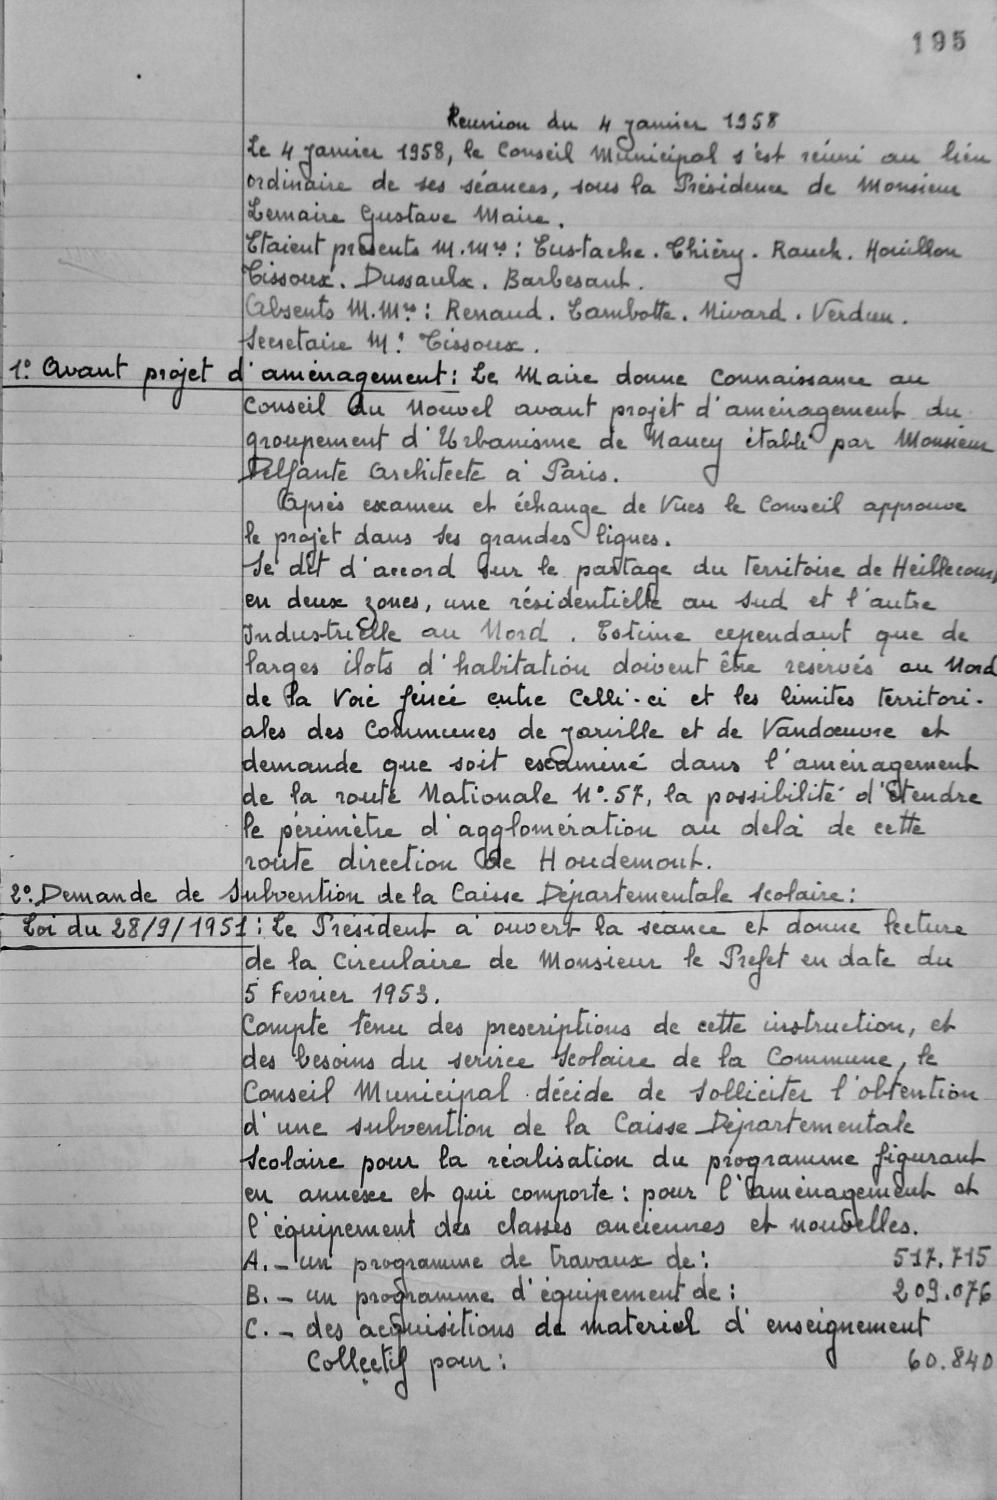 195
Reunion du 4 Janvier 1958
Le 4 Janvier 1958, le Conseil Municipal s'est réuni au lieu
ordinaire de ses séances, sous la Présidence de Monsieur
Lemaire Gustave Maire.
Etaient présents M.Mrs : Eustache. Thiéry. Rauch. Houillon
Tissoux. Dussaulx. Barbesant.
Absents M.Mrs : Renaud. Lambotte. Nivard. Verdun.
Secretaire Mr Tissoux.
1° Avant projet d'aménagement : Le Maire donne Connaissance au
Conseil du Nouvel avant projet d'aménagement du
groupement d'Urbanisme de Nancy établi par Monsieur
Delfante Architecte à Paris.
Après examen et échange de Vues le Conseil approuve
le projet dans ses grandes lignes.
Se dit d'accord sur le partage du territoire de Heillecourt
en deux zones, une résidentielle au Sud et l'autre
Industrielle au Nord. Estime cependant que de
larges ilots d'habitation doivent être reservés au Nord
de la Voie ferrée entre Celle-ci et les limites territori-
ales des Communes de Jarville et de Vandœuvre et
demande que soit examiné dans l'aménagement
de la route Nationale N°.57, la possibilité d'Etendre
le périmètre d'agglomération au delà de cette
route direction de Houdemont.
2° Demande de Subvention de la Caisse Départementale Scolaire :
Loi du 28/9/1951 : Le Président a ouvert la seance et donne lecture
de la Circulaire de Monsieur le Prefet en date du
5 Fevrier 1953.
Compte tenu des prescriptions de cette instruction, et
des besoins du service Scolaire de la Commune, le
Conseil Municipal décide de Solliciter l'obtention
d'une subvention de la Caisse Départementale
Scolaire pour la réalisation du programme figurant
en annexe et qui comporte : pour l'aménagement et
l'équipement des classes anciennes et nouvelles.
A. - un programme de travaux de : 517.715
B. - un programme d'équipement de : 209.076
C. - des acquisitions de materiel d'enseignement
Collectif pour : 60.840